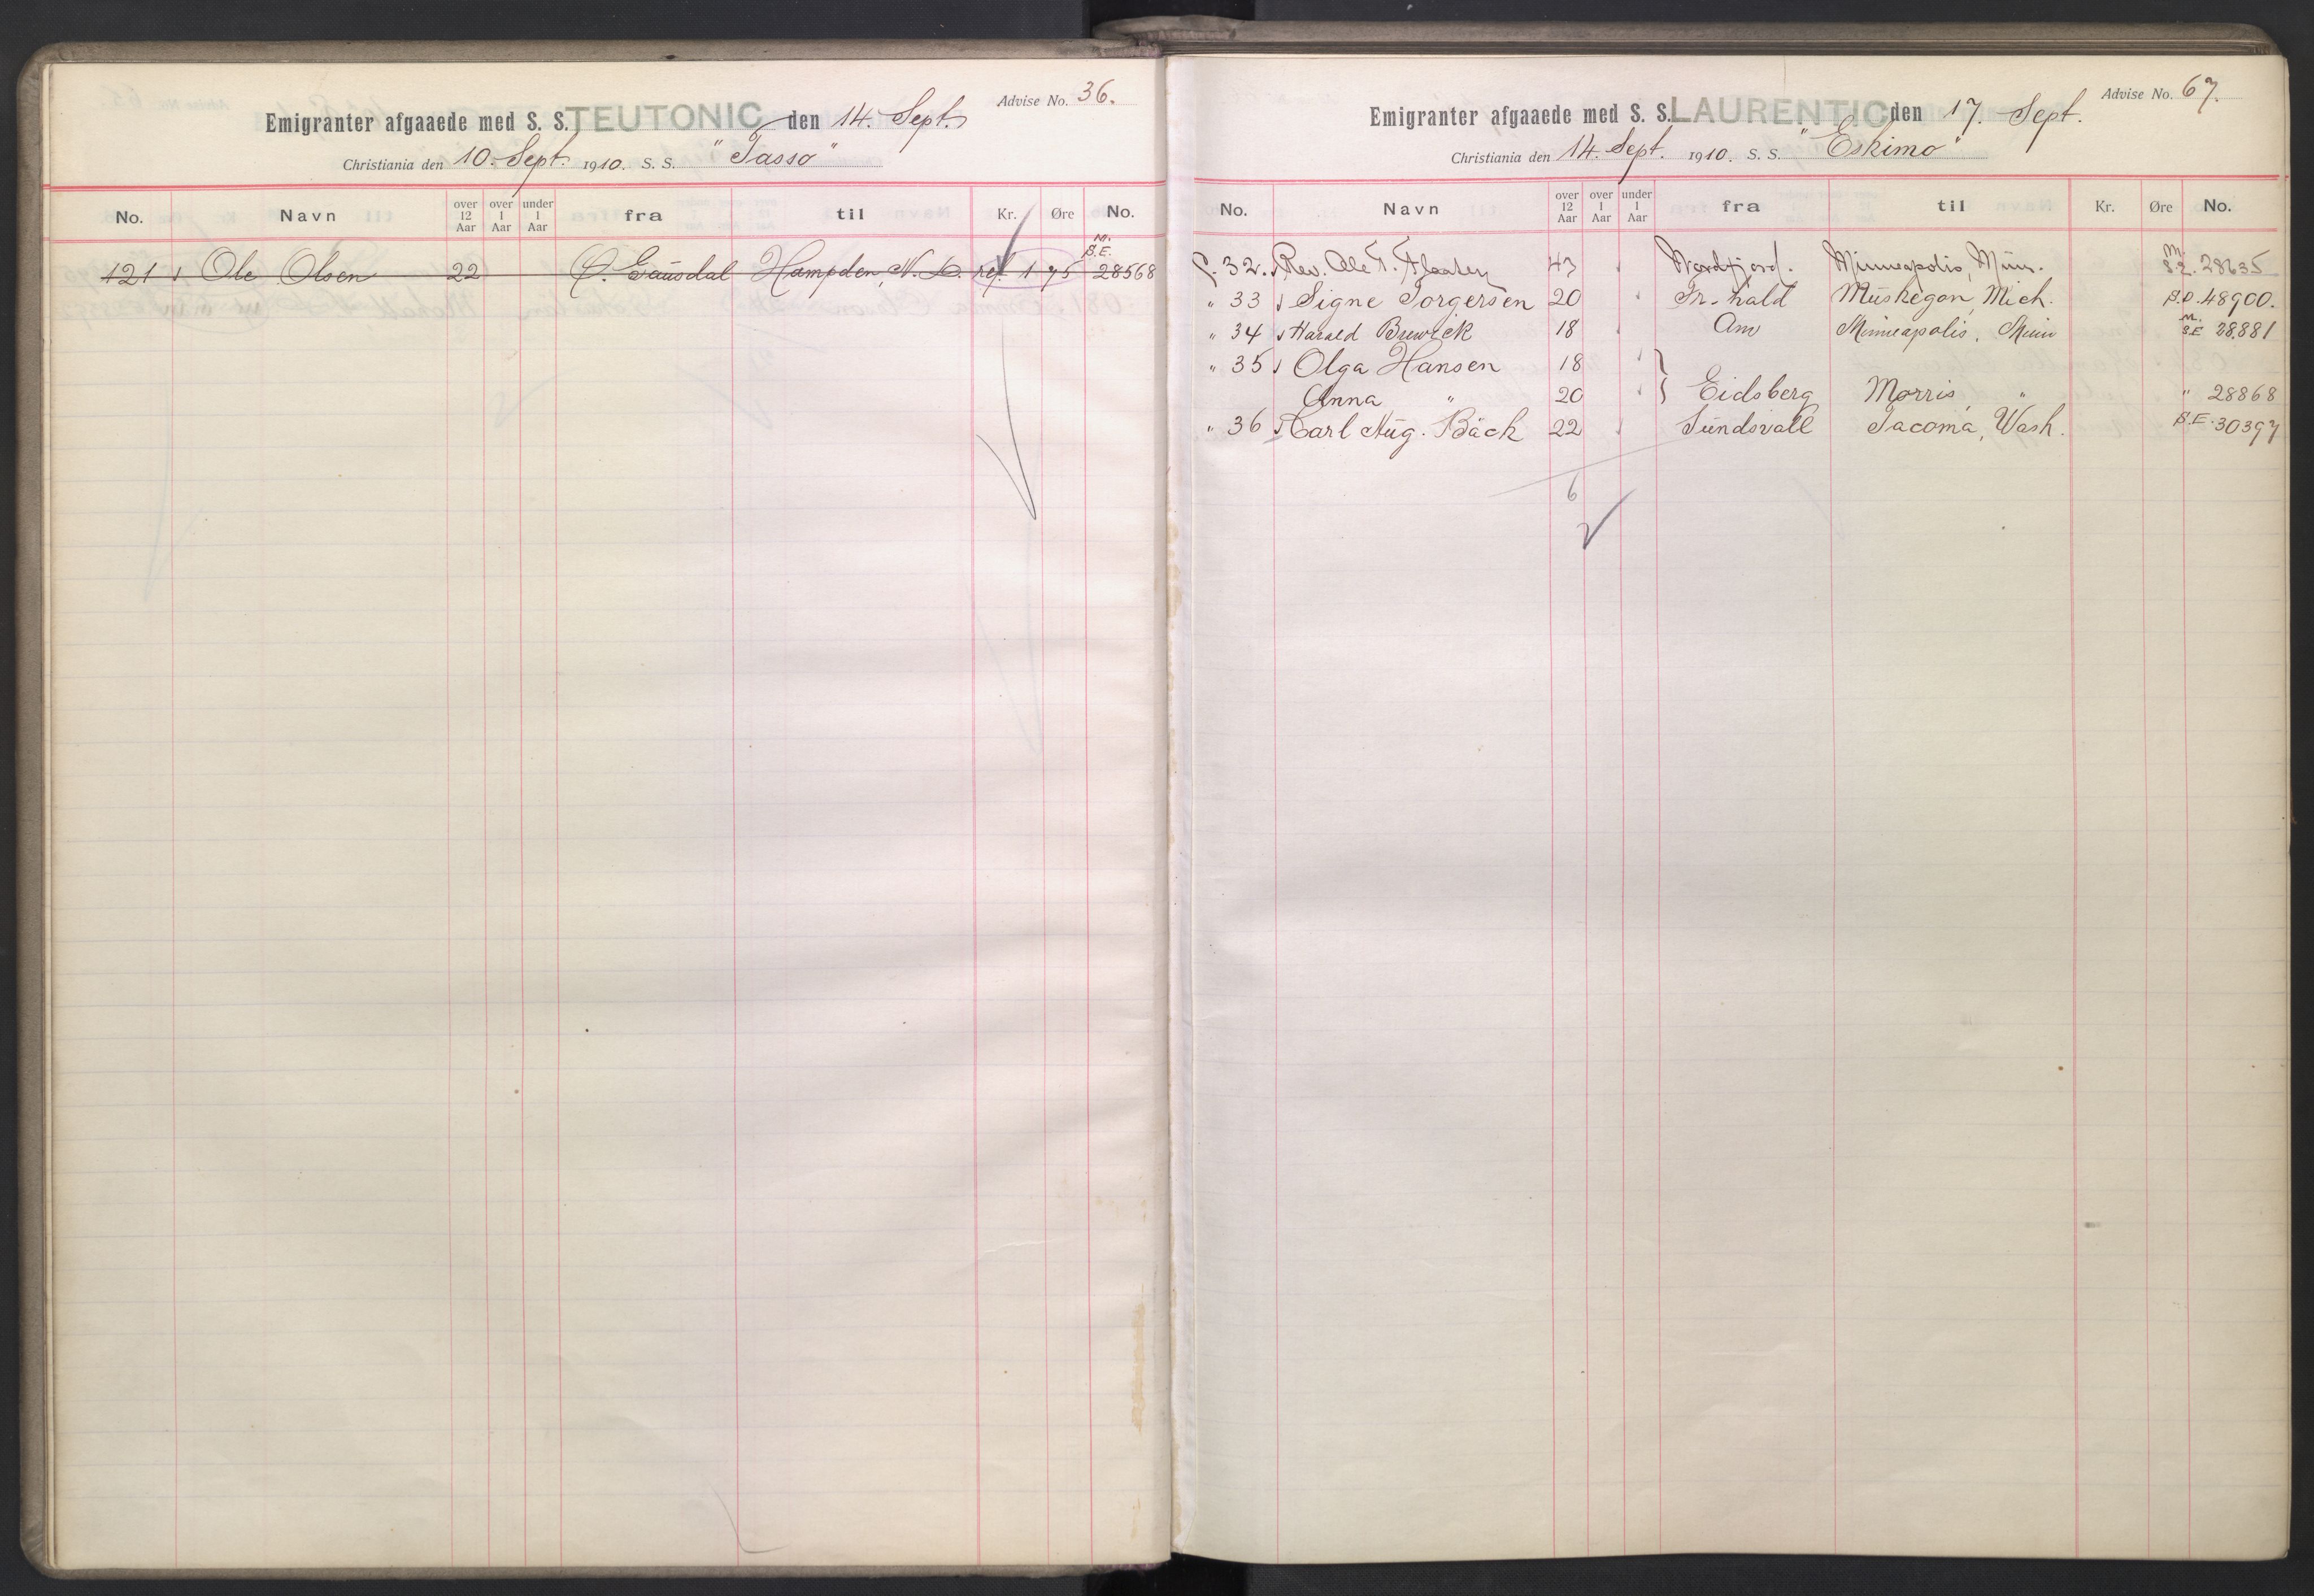 Advise No. 36.
Emigranter afgaaede med S. S. TEUTONIC den 14. Sept.
Christiania den 10. Sept. 1910. S. S. "Tasso"
No. Navn over 12 Aar over 1 Aar under 1 Aar fra til Kr. Øre No.
421 Ole Olsen 22 Ø. Gausdal Hampden, N. D. ref. 1 75 M. S.E. 28568
Advise No. 67.
Emigranter afgaaede med S. S. LAURENTIC den 17. Sept.
Christiania den 14. Sept. 1910. S. S. "Eskimo"
No. Navn over 12 Aar over 1 Aar under 1 Aar fra til Kr. Øre No.
32. Rev. Ole T. Flaaten 43 Nordfjord. Minneapolis, Minn. M. S.E. 28635
" 33 Signe Torgersen 20 Fr.hald Muskegon, Mich. S.O. 48900.
" 34 Harald Brewick 18 Am Minneapolis, Minn M. S.E 28881
" 35 Olga Hansen 18
Anna " 20 } Eidsberg Morris, " " 28868
" 36 Carl Aug. Bäck 22 Sundsvall Tacoma, Wash. S.E. 30397
6